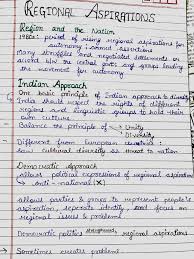 REGIONAL ASPIRATIONS
Region and the Nation
1980s: period of rising regional aspirations for
autonomy; armed assertions
many struggles negotiated settlements or
accord b/w the central govt. and groups leading
the movement for autonomy.
Indian Approach
One basic principle of Indian approach to diversity
India should respect the rights of different
regions and linguistic groups to hold their
own culture.
Balance the principle of Unity
Diversity
Different from European
saw cultural diversity as threat to nation
Democratic Approach
allows political expressions of regional aspirations
→ anti-national (X)
Allows parties & groups to represent people's
aspiration, separate identity and focus on
regional issues & problems.
Democratic politics regional aspirations
Sometimes creates problems